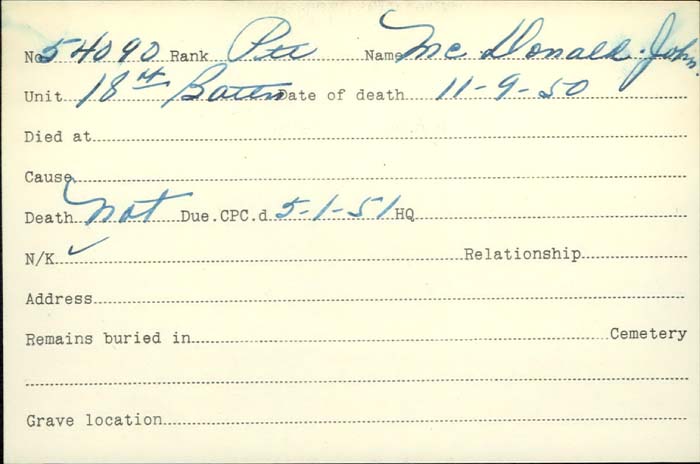 No 54090 Rank Pte Name Mc Donald. John.
Unit 18th Battn Date of death 11-9-50
Died at
Cause
Death Not Due.CPC.d 5-1-51 HQ
N/K Relationship
Address
Remains buried in Cemetery
Grave location